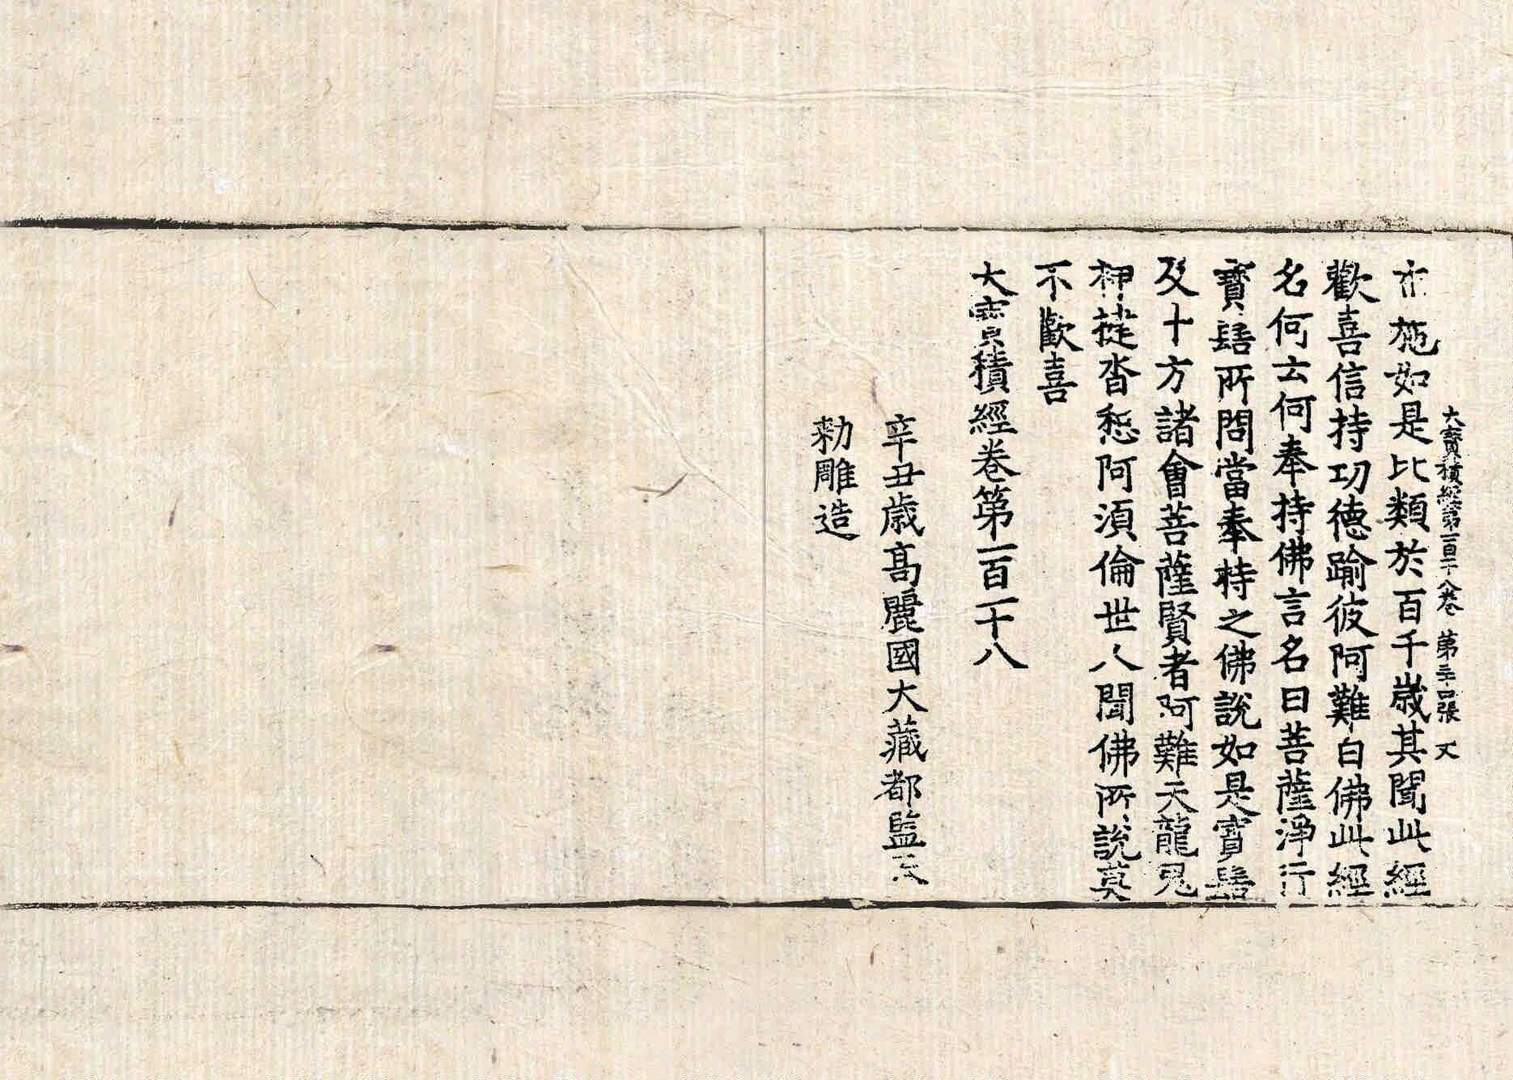 大寶積經第一百十八卷 第三十呂張 丈
布施如是比類於百千歲其聞此經
歡喜信持功德踰彼阿難白佛此經
名何云何奉持佛言名曰菩薩淨行
寶髻所問當奉持之佛說如是寶髻
及十方諸會菩薩賢者阿難天龍鬼
神揵沓惒阿須倫世人聞佛所說莫
不歡喜
大寶積經卷第一百一十八
辛丑歲高麗國大藏都監奉
勅雕造